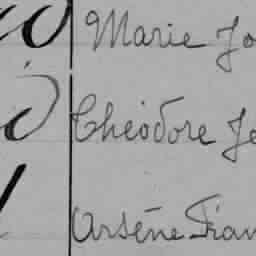 Marie Jo
Théodore Je
Arsène Fran